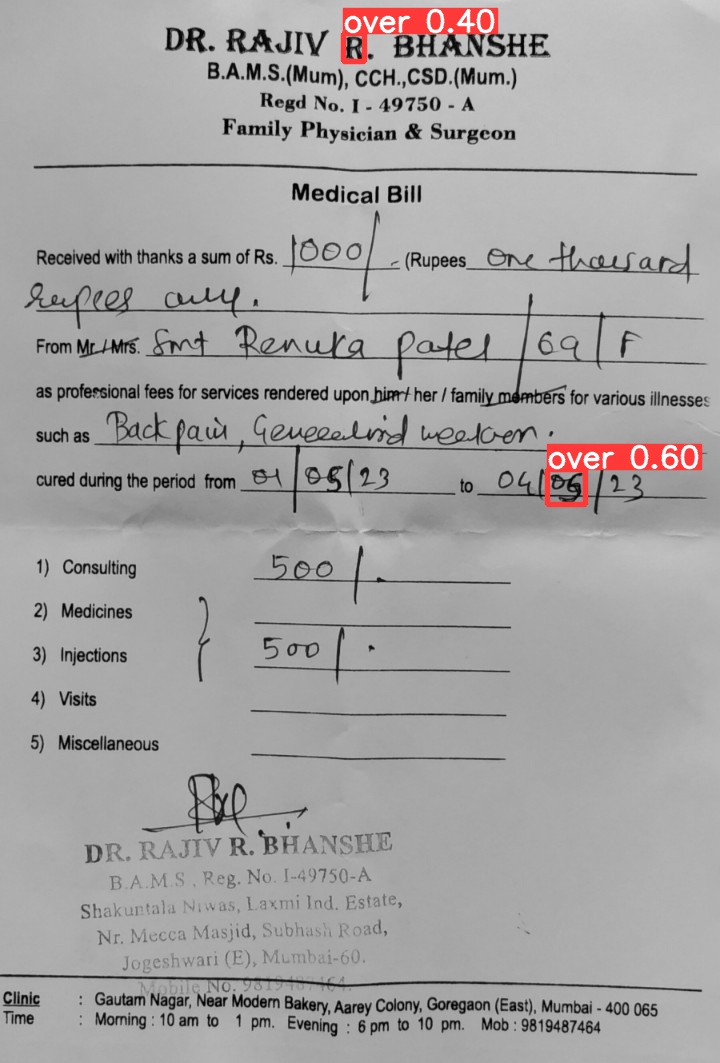 over 0.40
DR. RAJIV R. BHANSHE
B.A.M.S.(Mum), CCH.,CSD.(Mum.)
Regd No. I - 49750 - A
Family Physician & Surgeon
Medical Bill
Received with thanks a sum of Rs. 1000/- (Rupees One thousand
rupees only.
From Mr./Mrs. Smt Renuka Patel / 69 / F
as professional fees for services rendered upon him / her / family members for various illnesses
such as Back pain,
over 0.60
cured during the period from 01/05/23 to 04/05/23
1) Consulting 500/-
2) Medicines
3) Injections 500/-
4) Visits
5) Miscellaneous
DR. RAJIV R. BHANSHE
B.A.M.S, Reg. No. I-49750-A
Shakuntala Niwas, Laxmi Ind. Estate,
Nr. Mecca Masjid, Subhash Road,
Jogeshwari (E), Mumbai-60.
Mobile No. 9819487464.
Clinic : Gautam Nagar, Near Modern Bakery, Aarey Colony, Goregaon (East), Mumbai - 400 065
Time : Morning : 10 am to 1 pm. Evening : 6 pm to 10 pm. Mob : 9819487464